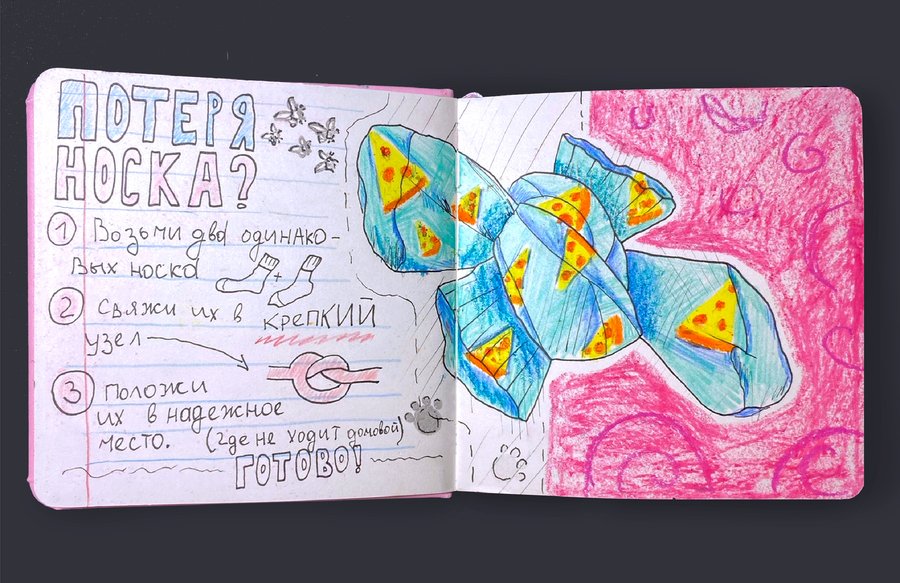 ПОТЕРЯ
НОСКА?
1 Возьми два одинако-
вых носка
2 Свяжи их в КРЕПКИЙ
узел
3 Положи
их в надежное
место. (где не ходит домовой)
ГОТОВО!